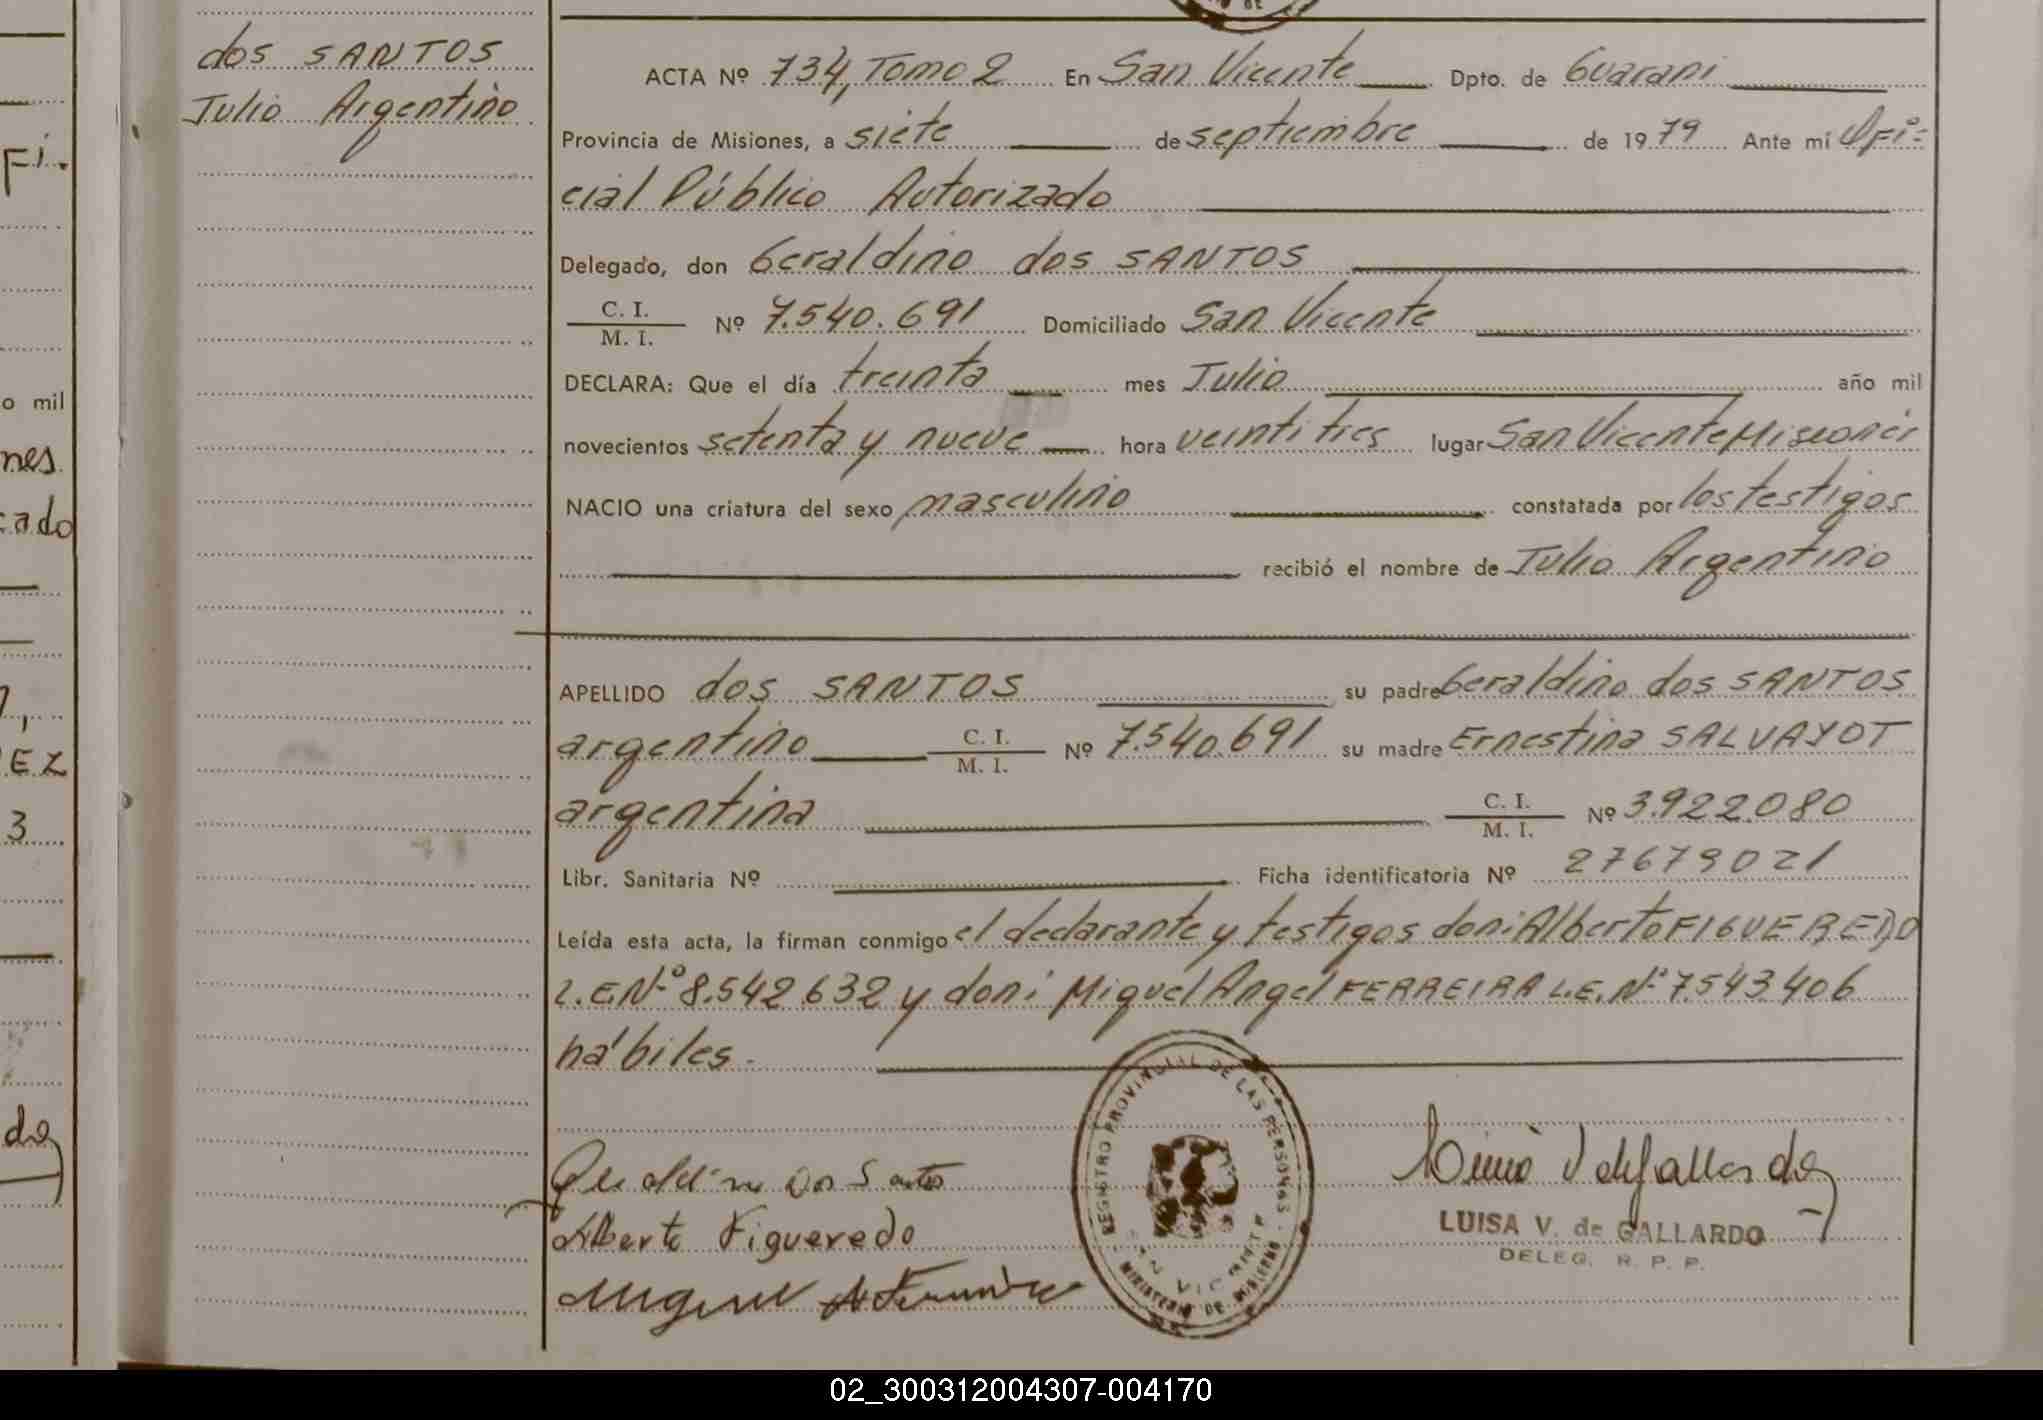 dos SANTOS
Julio Argentino
Fi.
o mil
nes.
cado
EZ
3
do
ACTA Nº 734, Tomo 2 En San Vicente Dpto. de Guarani
Provincia de Misiones, a siete de septiembre de 1979 Ante mí Ofi=
cial Público Autorizado
Delegado, don Geraldino dos SANTOS
C. I.
M. I. Nº 7.540.691 Domiciliado San Vicente
DECLARA: Que el día treinta mes Julio año mil
novecientos setenta y nueve hora veintitres lugar San Vicente Misiones
NACIO una criatura del sexo masculino constatada por los testigos
recibió el nombre de Julio Argentino
APELLIDO dos SANTOS su padre Geraldino dos SANTOS
argentino C. I.
M. I. Nº 7.540.691 su madre Ernestina SALVAYOT
argentina C. I.
M. I. Nº 3.922.080
Libr. Sanitaria Nº Ficha identificatoria Nº 27679021
Leída esta acta, la firman conmigo el declarante y testigos don: Alberto FIGUEREDO
L.E.Nº 8.542.632 y don: Miguel Angel FERREIRA L.E. Nº 7.543.406
hábiles.-
REGISTRO PROVINCIAL DE LAS PERSONAS
SAN VICENTE
MINISTERIO DE GOBIERNO
Alberto Figueredo
LUISA V. de GALLARDO
DELEG. R. P. P.
02_300312004307-004170